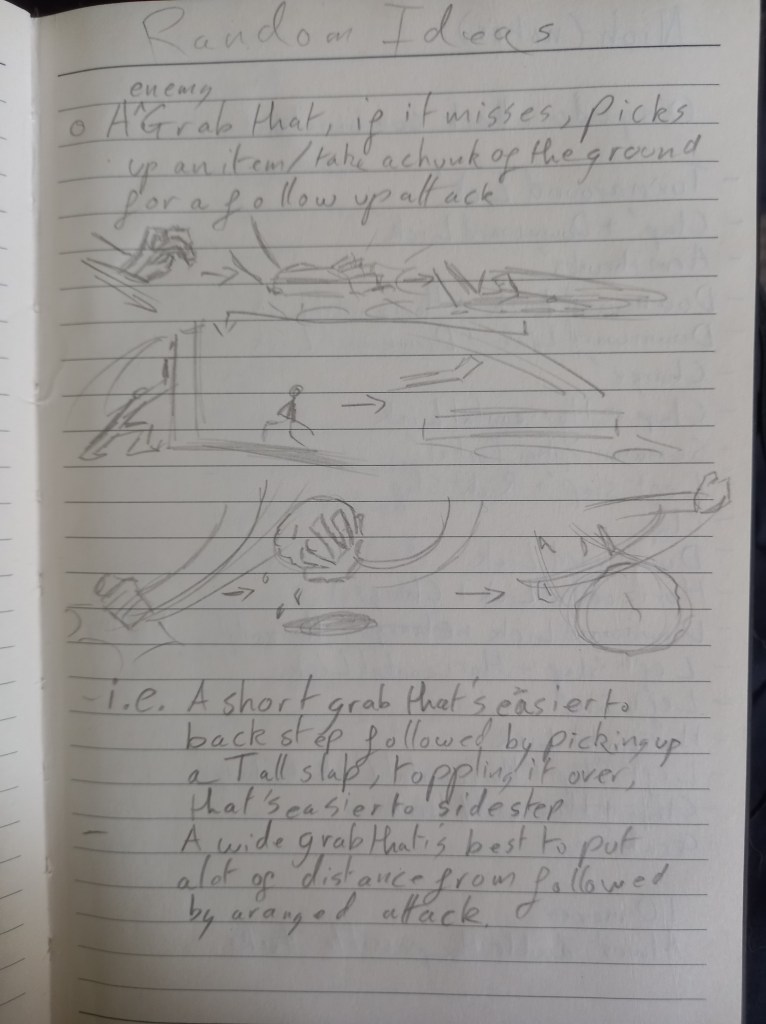 Random Ideas
enemy
o A ^ Grab that, if it misses, picks
up an item/take a chunk of the ground
for a follow up attack
- i.e. A short grab that's easier to
back step followed by picking up
a Tall slab, toppling it over,
that's easier to side step
- A wide grab that's best to put
alot of distance from followed
by a ranged attack.